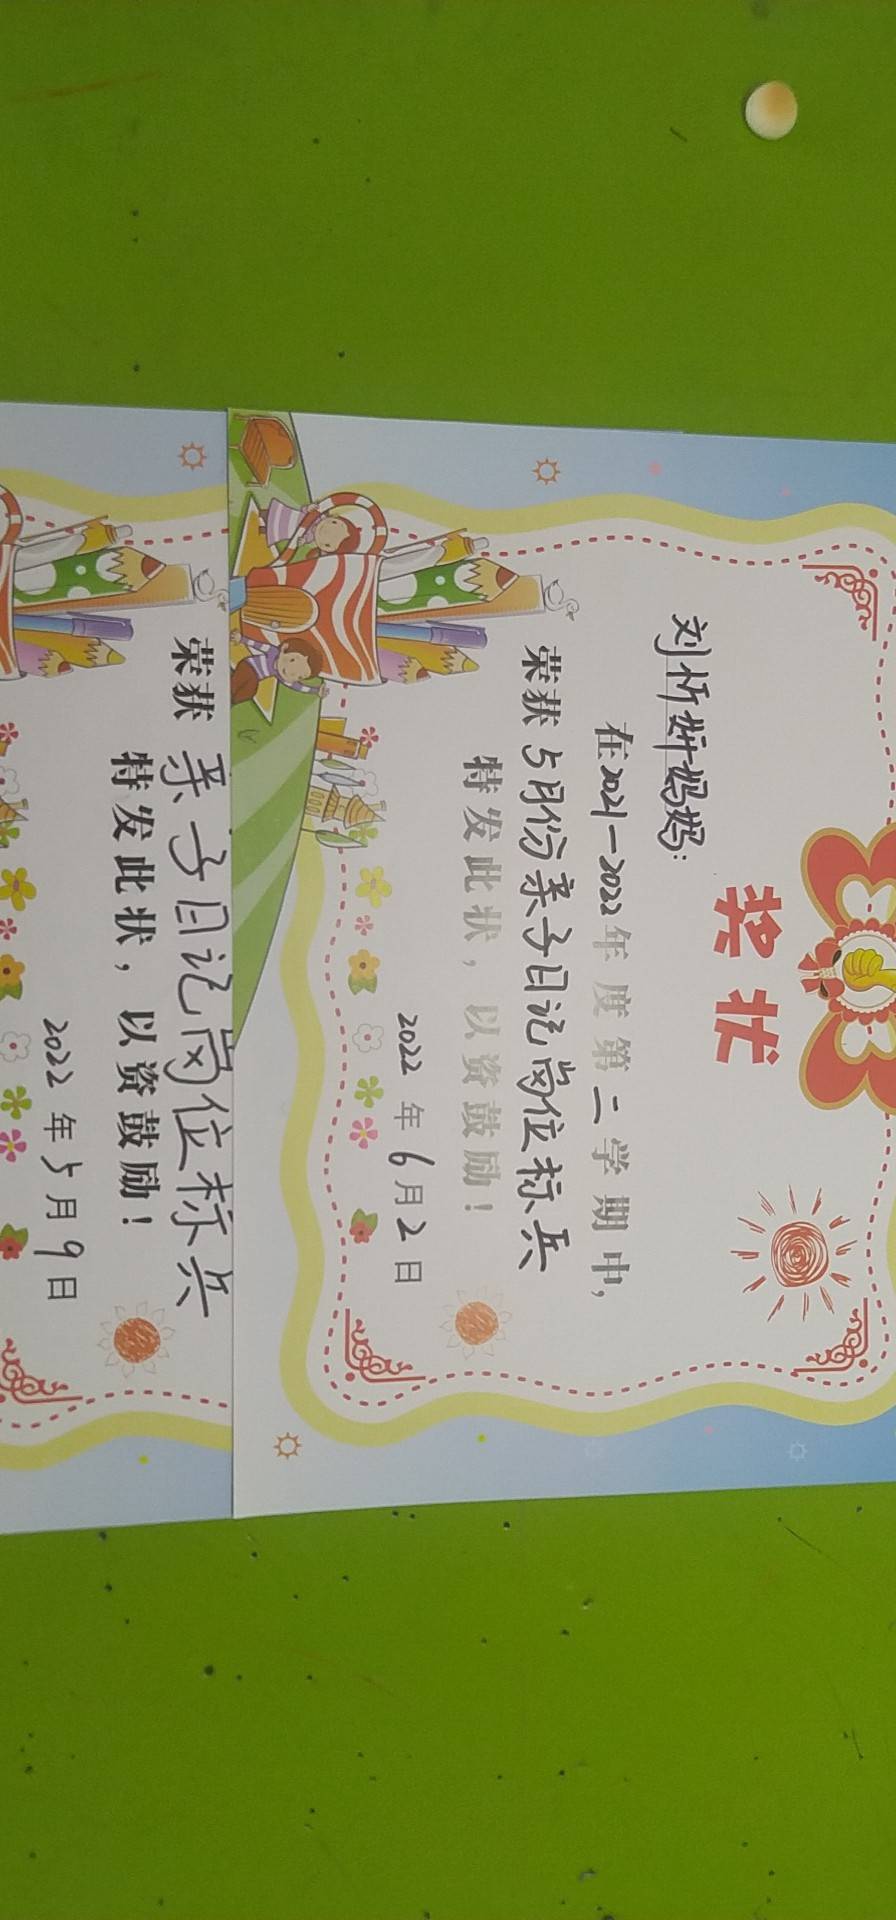 奖状
刘忻妍妈妈:
在2021-2022年度第二学期中,
荣获5月份亲子日记岗位标兵
特发此状,以资鼓励!
2022年6月2日
荣获亲子日记岗位标兵
特发此状,以资鼓励!
2022年5月9日